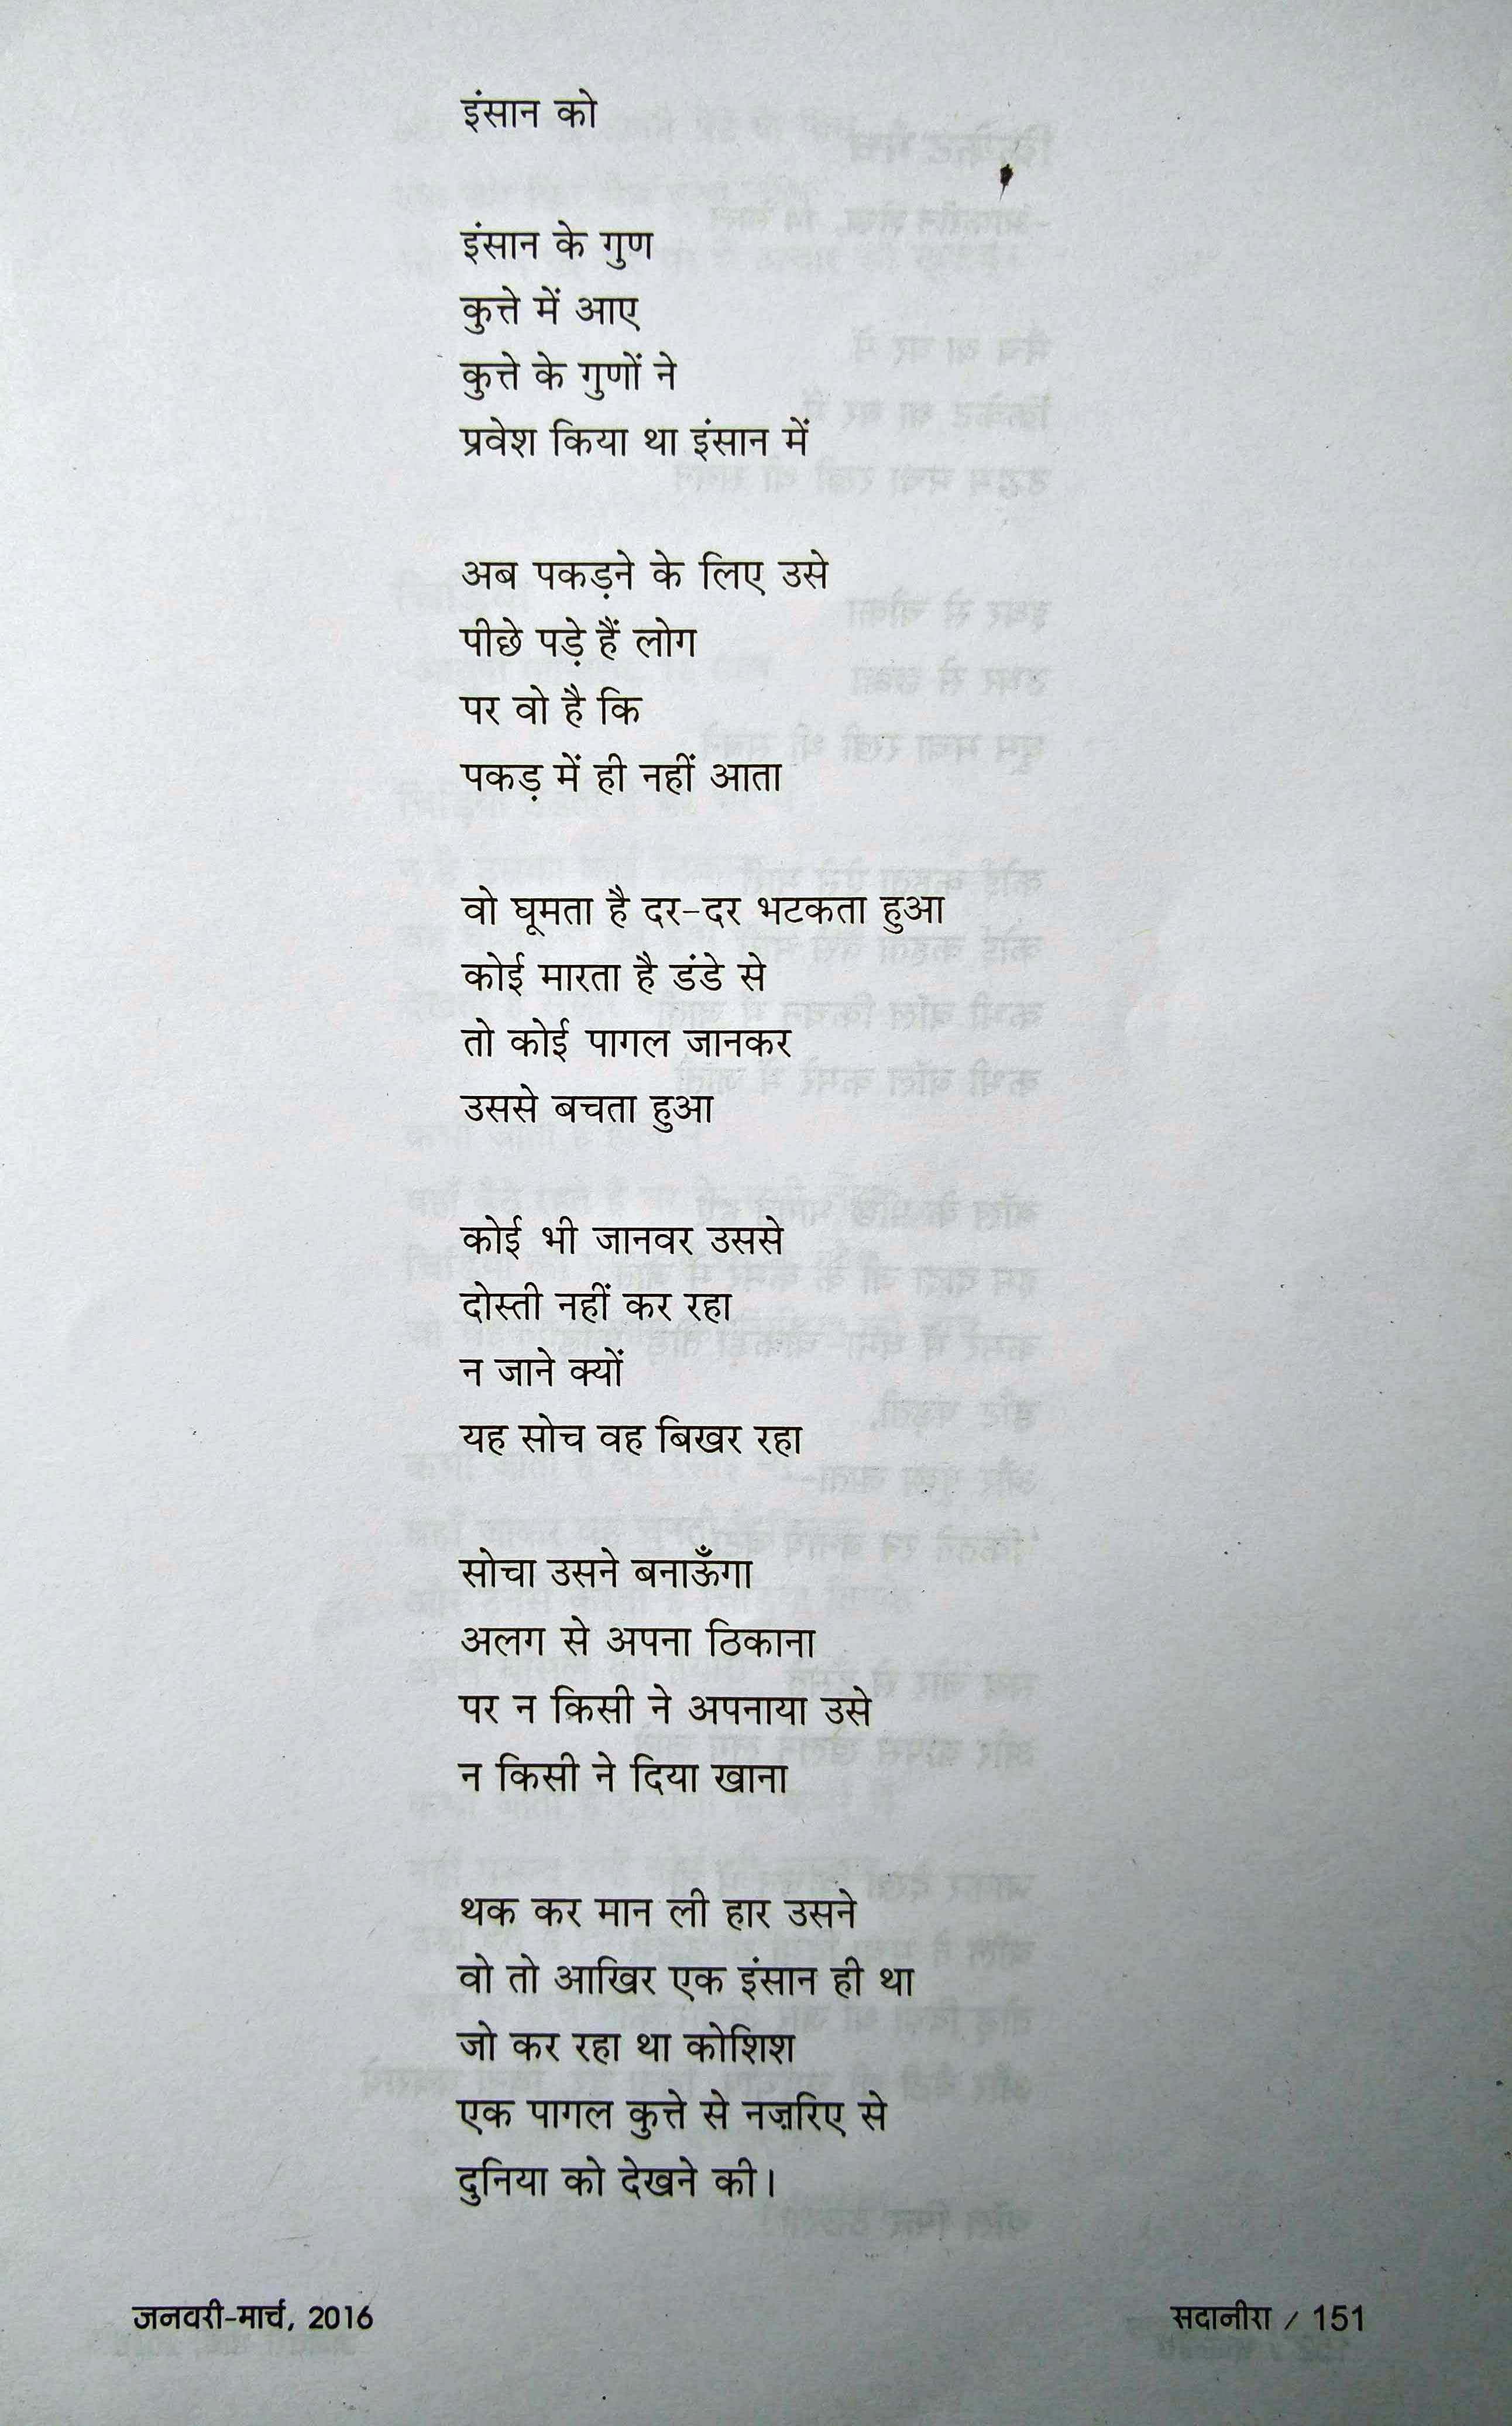 इंसान को
इंसान के गुण
कुत्ते में आए
कुत्ते के गुणों ने
प्रवेश किया था इंसान में
अब पकड़ने के लिए उसे
पीछे पड़े हैं लोग
पर वो है कि
पकड़ में ही नहीं आता
वो घूमता है दर-दर भटकता हुआ
कोई मारता है डंडे से
तो कोई पागल जानकर
उससे बचता हुआ
कोई भी जानवर उससे
दोस्ती नहीं कर रहा
न जाने क्यों
यह सोच वह बिखर रहा
सोचा उसने बनाऊँगा
अलग से अपना ठिकाना
पर न किसी ने अपनाया उसे
न किसी ने दिया खाना
थक कर मान ली हार उसने
वो तो आखिर एक इंसान ही था
जो कर रहा था कोशिश
एक पागल कुत्ते से नज़रिए से
दुनिया को देखने की।
जनवरी-मार्च, 2016
सदानीरा / 151